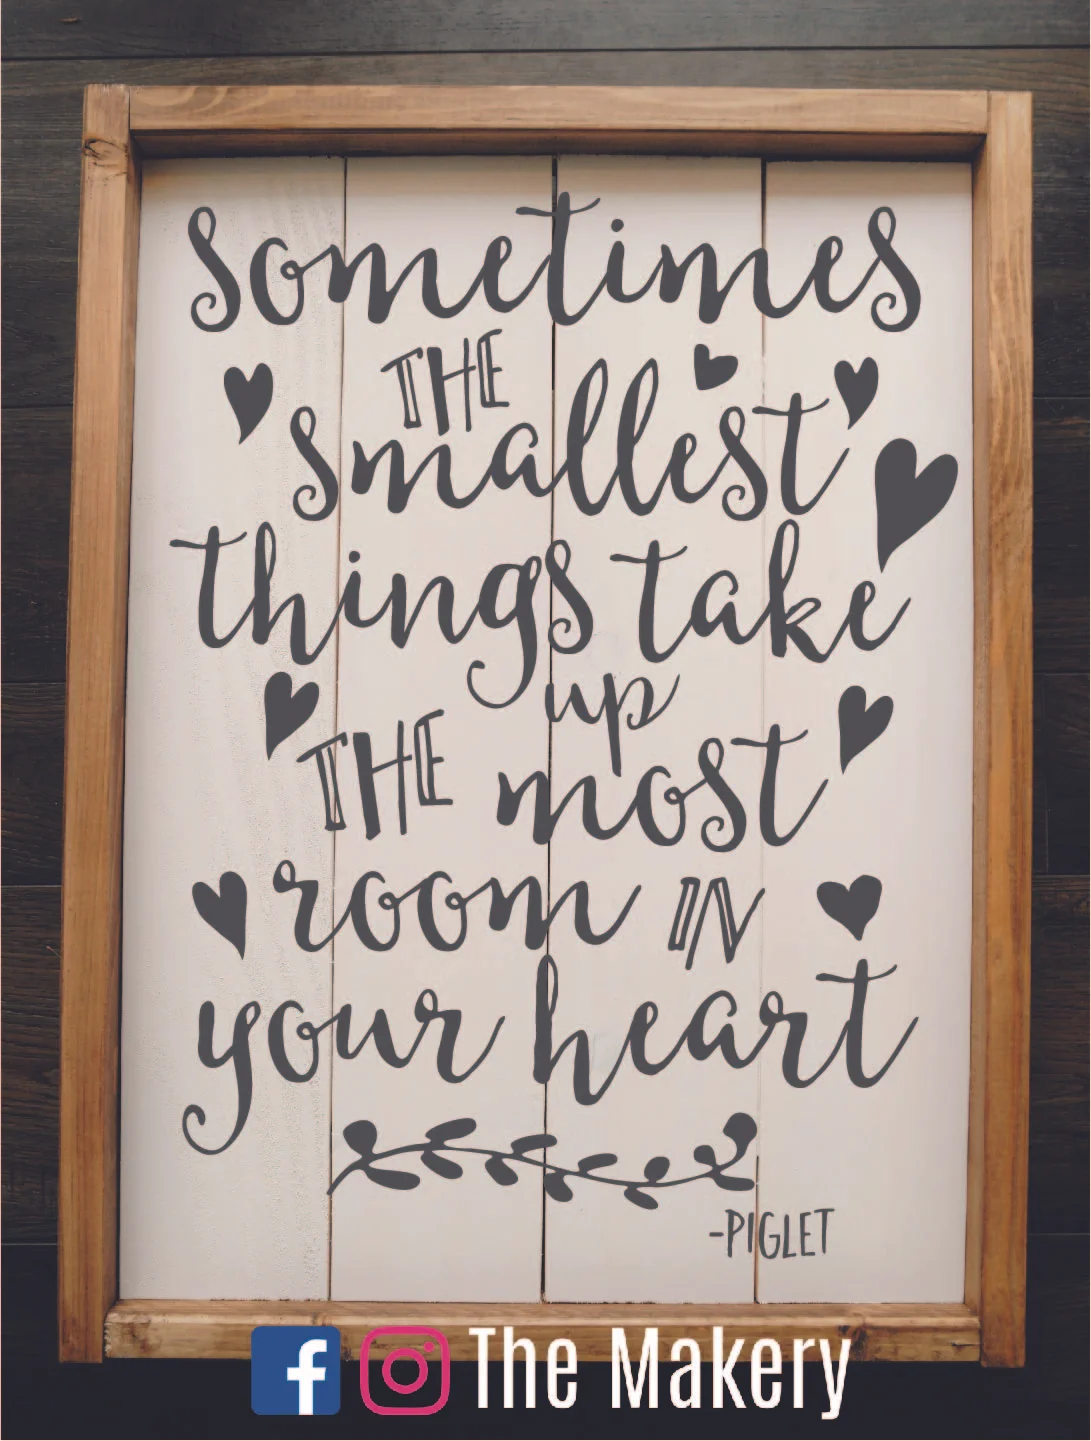 sometimes
THE
smallest
things take
up
THE most
room IN
your heart
-PIGLET
f The Makery